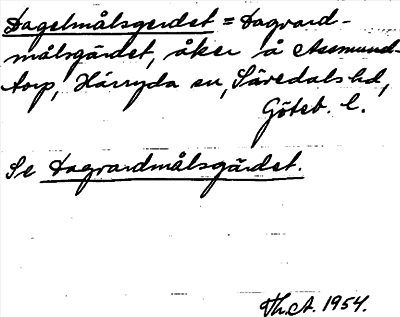 Dagelmålsgerdet = Dagvard-
målsgärdet, åker å Assmund-
torp, Härryda sn, Sävedals hd,
Göteb. l.
Se Dagvardmålsgärdet.
Th.A. 1954.